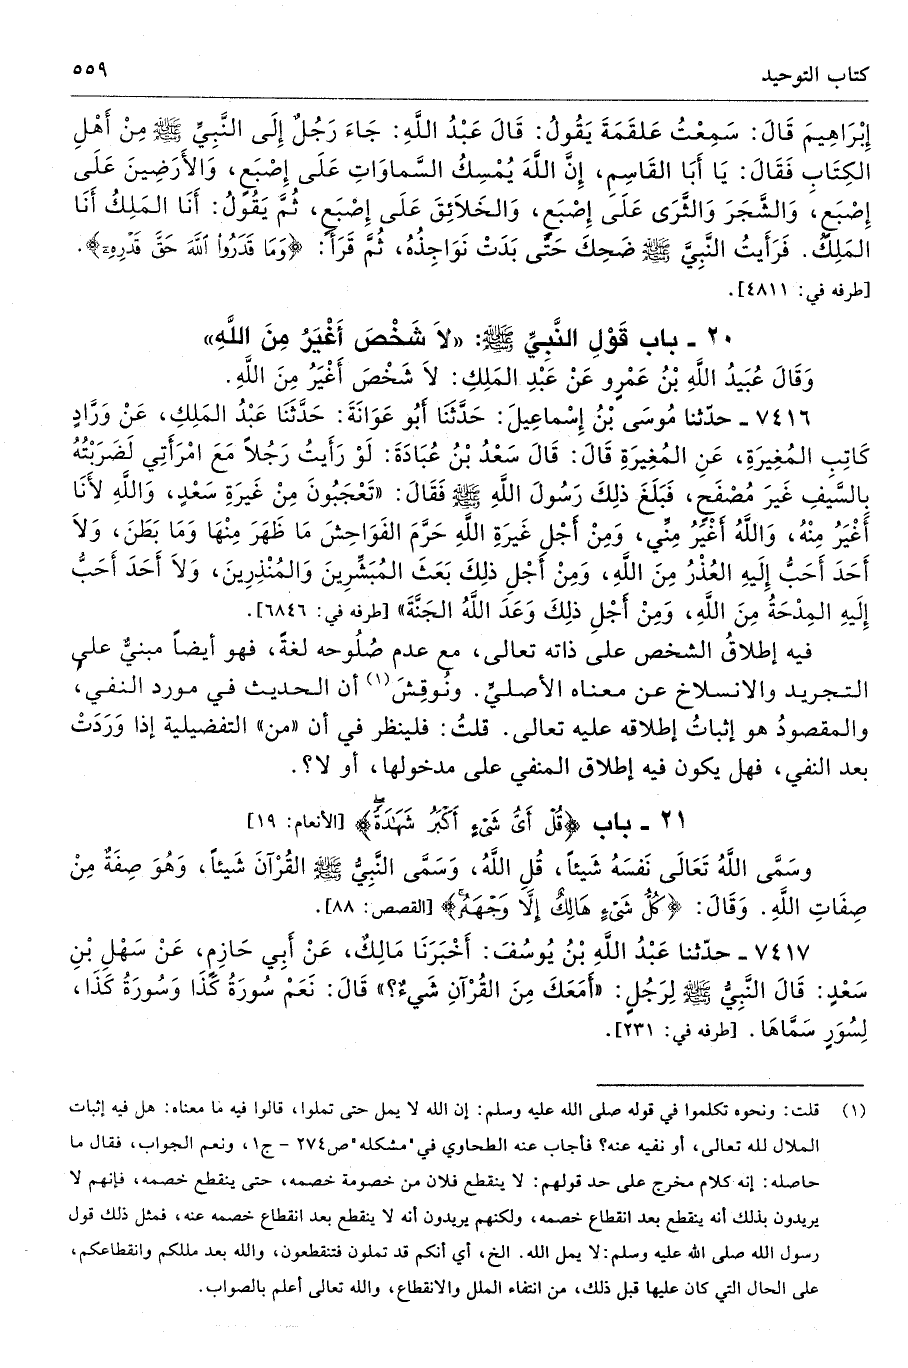 كتاب التوحيد ٥٥٩
إِبْرَاهِيمَ قَالَ: سَمِعْتُ عَلقَمَةَ يَقُولُ: قَالَ عَبْدُ اللَّهِ: جَاءَ رَجُلٌ إِلَى النَّبِيِّ ﷺ مِنْ أَهْلِ
الكِتَابِ فَقَالَ: يَا أَبَا القَاسِمِ، إِنَّ اللَّهَ يُمْسِكُ السَّماوَاتِ عَلَى إِصْبَعٍ، وَالأَرَضِينَ عَلَى
إِصْبَعٍ، وَالشَّجَرَ وَالثَّرَى عَلَى إِصْبَعٍ، وَالخَلاَئِقَ عَلَى إِصْبَعٍ، ثُمَّ يَقُولُ: أَنَا المَلِكُ أَنَا
المَلِكُ. فَرَأَيتُ النَّبِيَّ ﷺ ضَحِكَ حَتَّى بَدَتْ نَوَاجِذُهُ، ثُمَّ قَرَأَ: ﴿وَمَا قَدَرُوا۟ ٱللَّهَ حَقَّ قَدْرِهِۦٓ﴾.
[طرفه في: ٤٨١١].
٢٠ ـ باب قَوْلِ النَّبِيِّ ﷺ: «لاَ شَخْصَ أَغْيَرُ مِنَ اللَّهِ»
وَقَالَ عُبَيدُ اللَّهِ بْنُ عَمْرٍو عَنْ عَبْدِ المَلِكِ: لاَ شَخْصَ أَغْيَرُ مِنَ اللَّهِ.
٧٤١٦ ـ حدّثنا مُوسَى بْنُ إِسْماعِيلَ: حَدَّثَنَا أَبُو عَوَانَةَ: حَدَّثَنَا عَبْدُ المَلِكِ، عَنْ وَرَّادٍ
كَاتِبِ المُغِيرَةِ، عَنِ المُغِيرَةِ قَالَ: قَالَ سَعْدُ بْنُ عُبَادَةَ: لَوْ رَأَيتُ رَجُلاً مَعَ امْرَأَتِي لَضَرَبْتُهُ
بِالسَّيفِ غَيرَ مُصْفَحٍ، فَبَلَغَ ذلِكَ رَسُولَ اللَّهِ ﷺ فَقَالَ: «تَعْجَبُونَ مِنْ غَيرَةِ سَعْدٍ، وَاللَّهِ لأَنَا
أَغْيَرُ مِنْهُ، وَاللَّهُ أَغْيَرُ مِنِّي، وَمِنْ أَجْلِ غَيرَةِ اللَّهِ حَرَّمَ الفَوَاحِشَ مَا ظَهَرَ مِنْهَا وَمَا بَطَنَ، وَلاَ
أَحَدَ أَحَبُّ إِلَيهِ العُذْرُ مِنَ اللَّهِ، وَمِنْ أَجْلِ ذلِكَ بَعَثَ المُبَشِّرِينَ وَالمُنْذِرِينَ، وَلاَ أَحَدَ أَحَبُّ
إِلَيهِ المِدْحَةُ مِنَ اللَّهِ، وَمِنْ أَجْلِ ذلِكَ وَعَدَ اللَّهُ الجَنَّةَ» [طرفه في: ٦٨٤٦].
فيه إطلاقُ الشخص على ذاته تعالى، مع عدم صُلُوحه لغةً، فهو أيضاً مبنيٌّ على
التجريد والانسلاخ عن معناه الأصليِّ. ونُوقِشَ(١) أن الحديث في مورد النفي،
والمقصودُ هو إثباتُ إطلاقه عليه تعالى. قلتُ: فلينظر في أن «من» التفضيلية إذا وَرَدَتْ
بعد النفي، فهل يكون فيه إطلاق المنفي على مدخولها، أو لا؟.
٢١ ـ باب ﴿قُلْ أَىُّ شَىْءٍ أَكْبَرُ شَهَٰدَةًۖ﴾ [الأنعام: ١٩]
وسَمَّى اللَّهُ تَعَالَى نَفْسَهُ شَيئاً، قُلِ اللَّهُ، وَسَمَّى النَّبِيُّ ﷺ القُرْآنَ شَيئاً، وَهُوَ صِفَةٌ مِنْ
صِفَاتِ اللَّهِ. وَقَالَ: ﴿كُلُّ شَىْءٍ هَالِكٌ إِلَّا وَجْهَهُۥۚ﴾ [القصص: ٨٨].
٧٤١٧ ـ حدّثنا عَبْدُ اللَّهِ بْنُ يُوسُفَ: أَخْبَرَنَا مَالِكٌ، عَنْ أَبِي حَازِمٍ، عَنْ سَهْلِ بْنِ
سَعْدٍ: قَالَ النَّبِيُّ ﷺ لِرَجُلٍ: «أَمَعَكَ مِنَ القُرْآنِ شَيءٌ؟» قَالَ: نَعَمْ سُورَةُ كَذَا وَسُورَةُ كَذَا،
لِسُوَرٍ سَمَّاهَا. [طرفه في: ٢٣١].
(١) قلت: ونحوه تكلموا في قوله صلى الله عليه وسلم: إن الله لا يمل حتى تملوا، قالوا فيه ما معناه: هل فيه إثبات
الملال لله تعالى، أو نفيه عنه؟ فأجاب عنه الطحاوي في "مشكله" ص٢٧٤ - ج١، ونعم الجواب، فقال ما
حاصله: إنه كلام مخرج على حد قولهم: لا ينقطع فلان من خصومة خصمه، حتى ينقطع خصمه، فإنهم لا
يريدون بذلك أنه ينقطع بعد انقطاع خصمه، ولكنهم يريدون أنه لا ينقطع بعد انقطاع خصمه عنه، فمثل ذلك قول
رسول الله صلى الله عليه وسلم:لا يمل الله. الخ، أي أنكم قد تملون فتنقطعون، والله بعد مللكم وانقطاعكم،
على الحال التي كان عليها قبل ذلك، من انتفاء الملل والانقطاع، والله تعالى أعلم بالصواب.